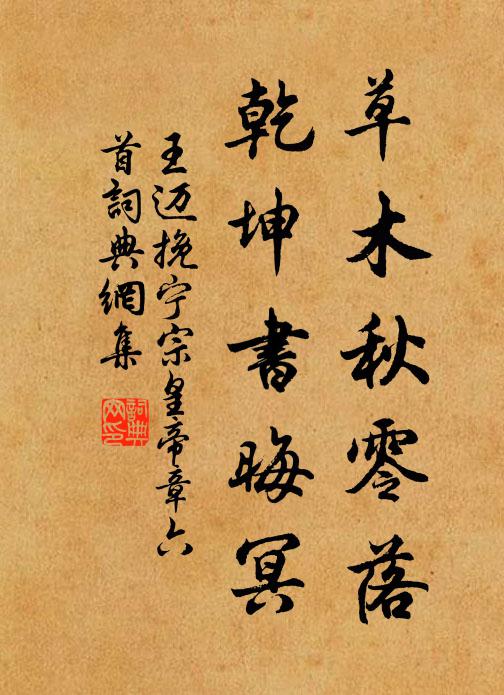 草木秋零落
乾坤書晦冥
王迈挽宁宗皇帝章六
首詞典網集
詞典网印